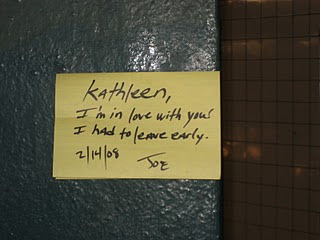 Kathleen,
I'm in love with you!
I had to leave early.
2/14/08 Joe